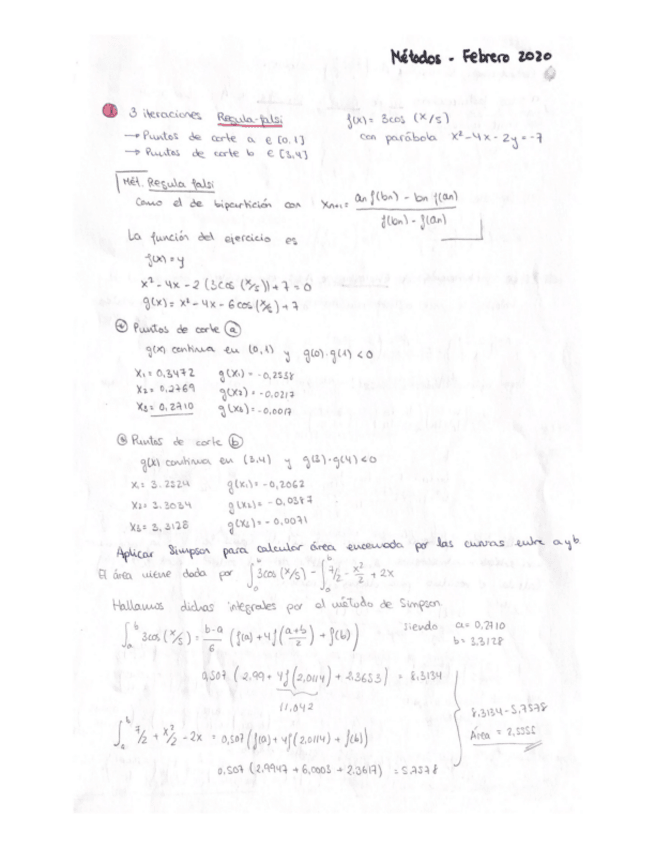 Métodos - Febrero 2020
① 3 iteraciones Regula-falsi f(x) = 3cos (x/5)
→ Puntos de corte a ∈ [0,1] con parábola x² - 4x - 2y = -7
→ Puntos de corte b ∈ [3,4]
Mét. Regula falsi
Como el de bipartición con Xn+1 = an f(bn) - bn f(an) / f(bn) - f(an)
La función del ejercicio es
f(x) = y
x² - 4x - 2 (3cos (x/5)) + 7 = 0
g(x) = x² - 4x - 6cos (x/5) + 7
Puntos de corte ⓐ
g(x) continua en (0,1) y g(0)·g(1) < 0
X₁ = 0,3472 g(x₁) = -0,2538
X₂ = 0,2769 g(x₂) = -0,0217
X₃ = 0,2710 g(x₃) = -0,0017
Puntos de corte ⓑ
g(x) continua en (3,4) y g(3)·g(4) < 0
X₁ = 3.2524 g(x₁) = -0,2062
X₂ = 3.3034 g(x₂) = -0,0387
X₃ = 3,3128 g(x₃) = -0,0071
Aplicar Simpson para calcular área encerrada por las curvas entre a y b.
El área viene dada por ∫ 3cos (x/5) - ∫ 7/2 - x²/2 + 2x
Hallamos dichas integrales por el método de Simpson
∫ₐᵇ 3cos (x/5) = b-a/6 (f(a) + 4f(a+b/2) + f(b)) siendo a = 0,2710
b = 3,3128
0,507 (2.99 + 4f(2,0114) + 2.3653) = 8.3134
11,042
8.3134 - 5,7578
Área = 2,5556
∫ₐᵇ 7/2 + x²/2 - 2x = 0,507 (f(a) + 4f(2,0114) + f(b))
0.507 (2.9947 + 6,0003 + 2.3617) = 5.7578